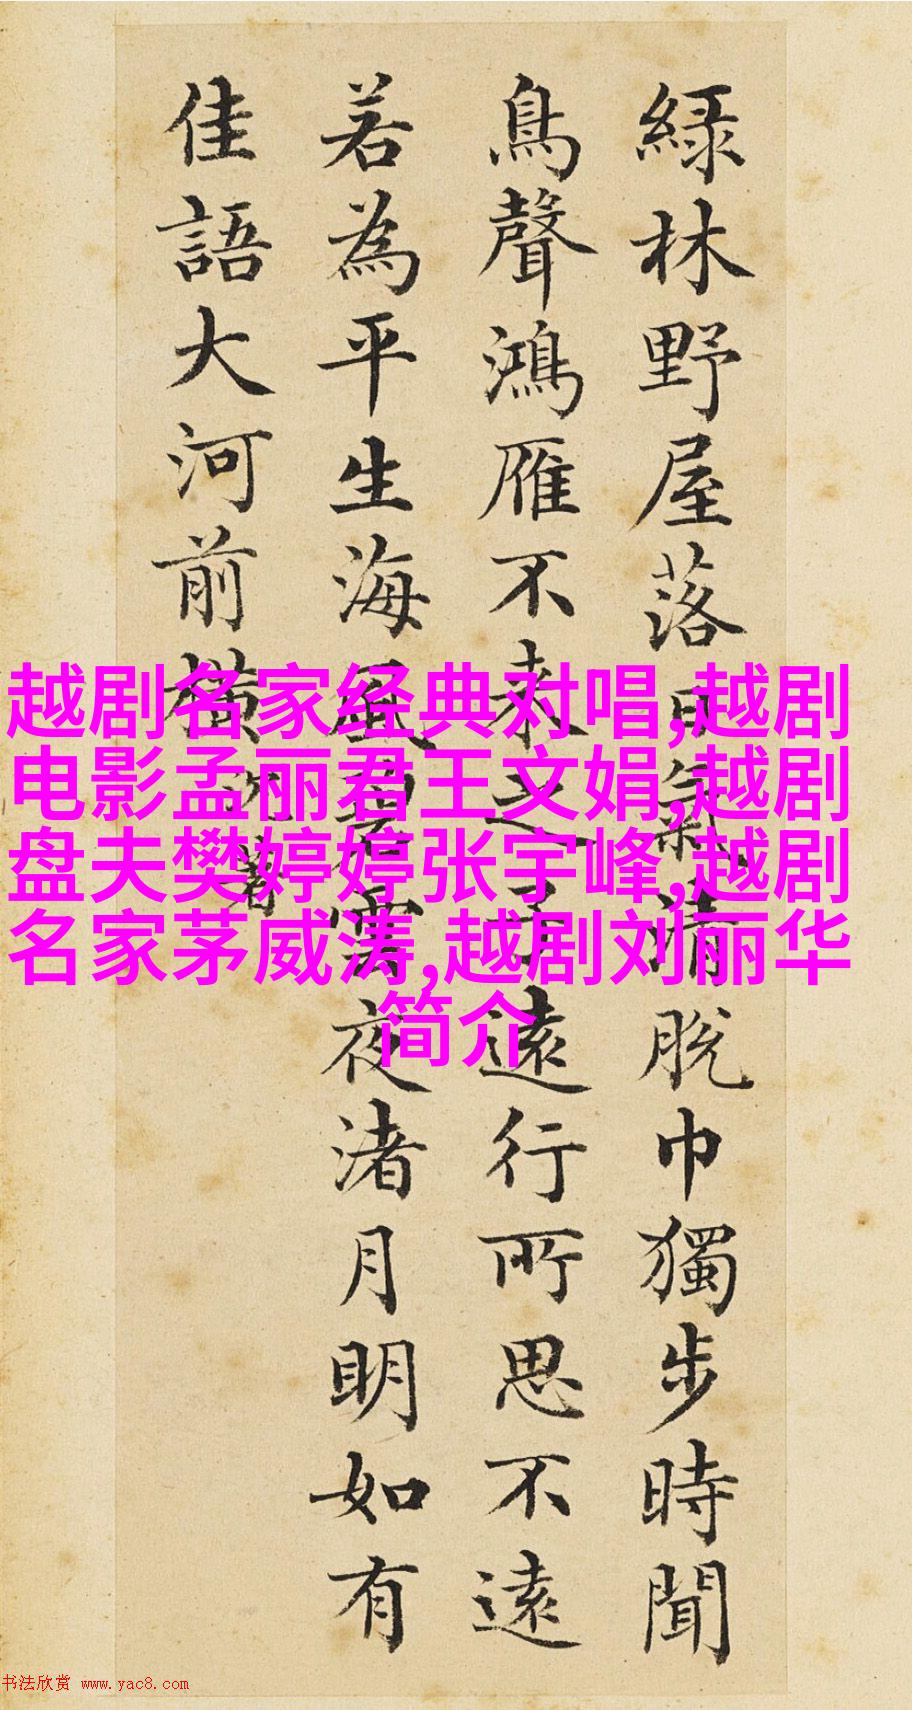 綠林野屋落日氣清脫巾獨步時聞
鳥聲鴻雁不來之子遠行所思不遠
若為平生海風碧雲夜渚月明如有
佳語大河前橫 沈著
越剧名家经典对唱,越剧
电影孟丽君王文娟,越剧
盘夫樊婷婷张宇峰,越剧
名家茅威涛,越剧刘丽华
简介
书法欣赏 www.yac8.com